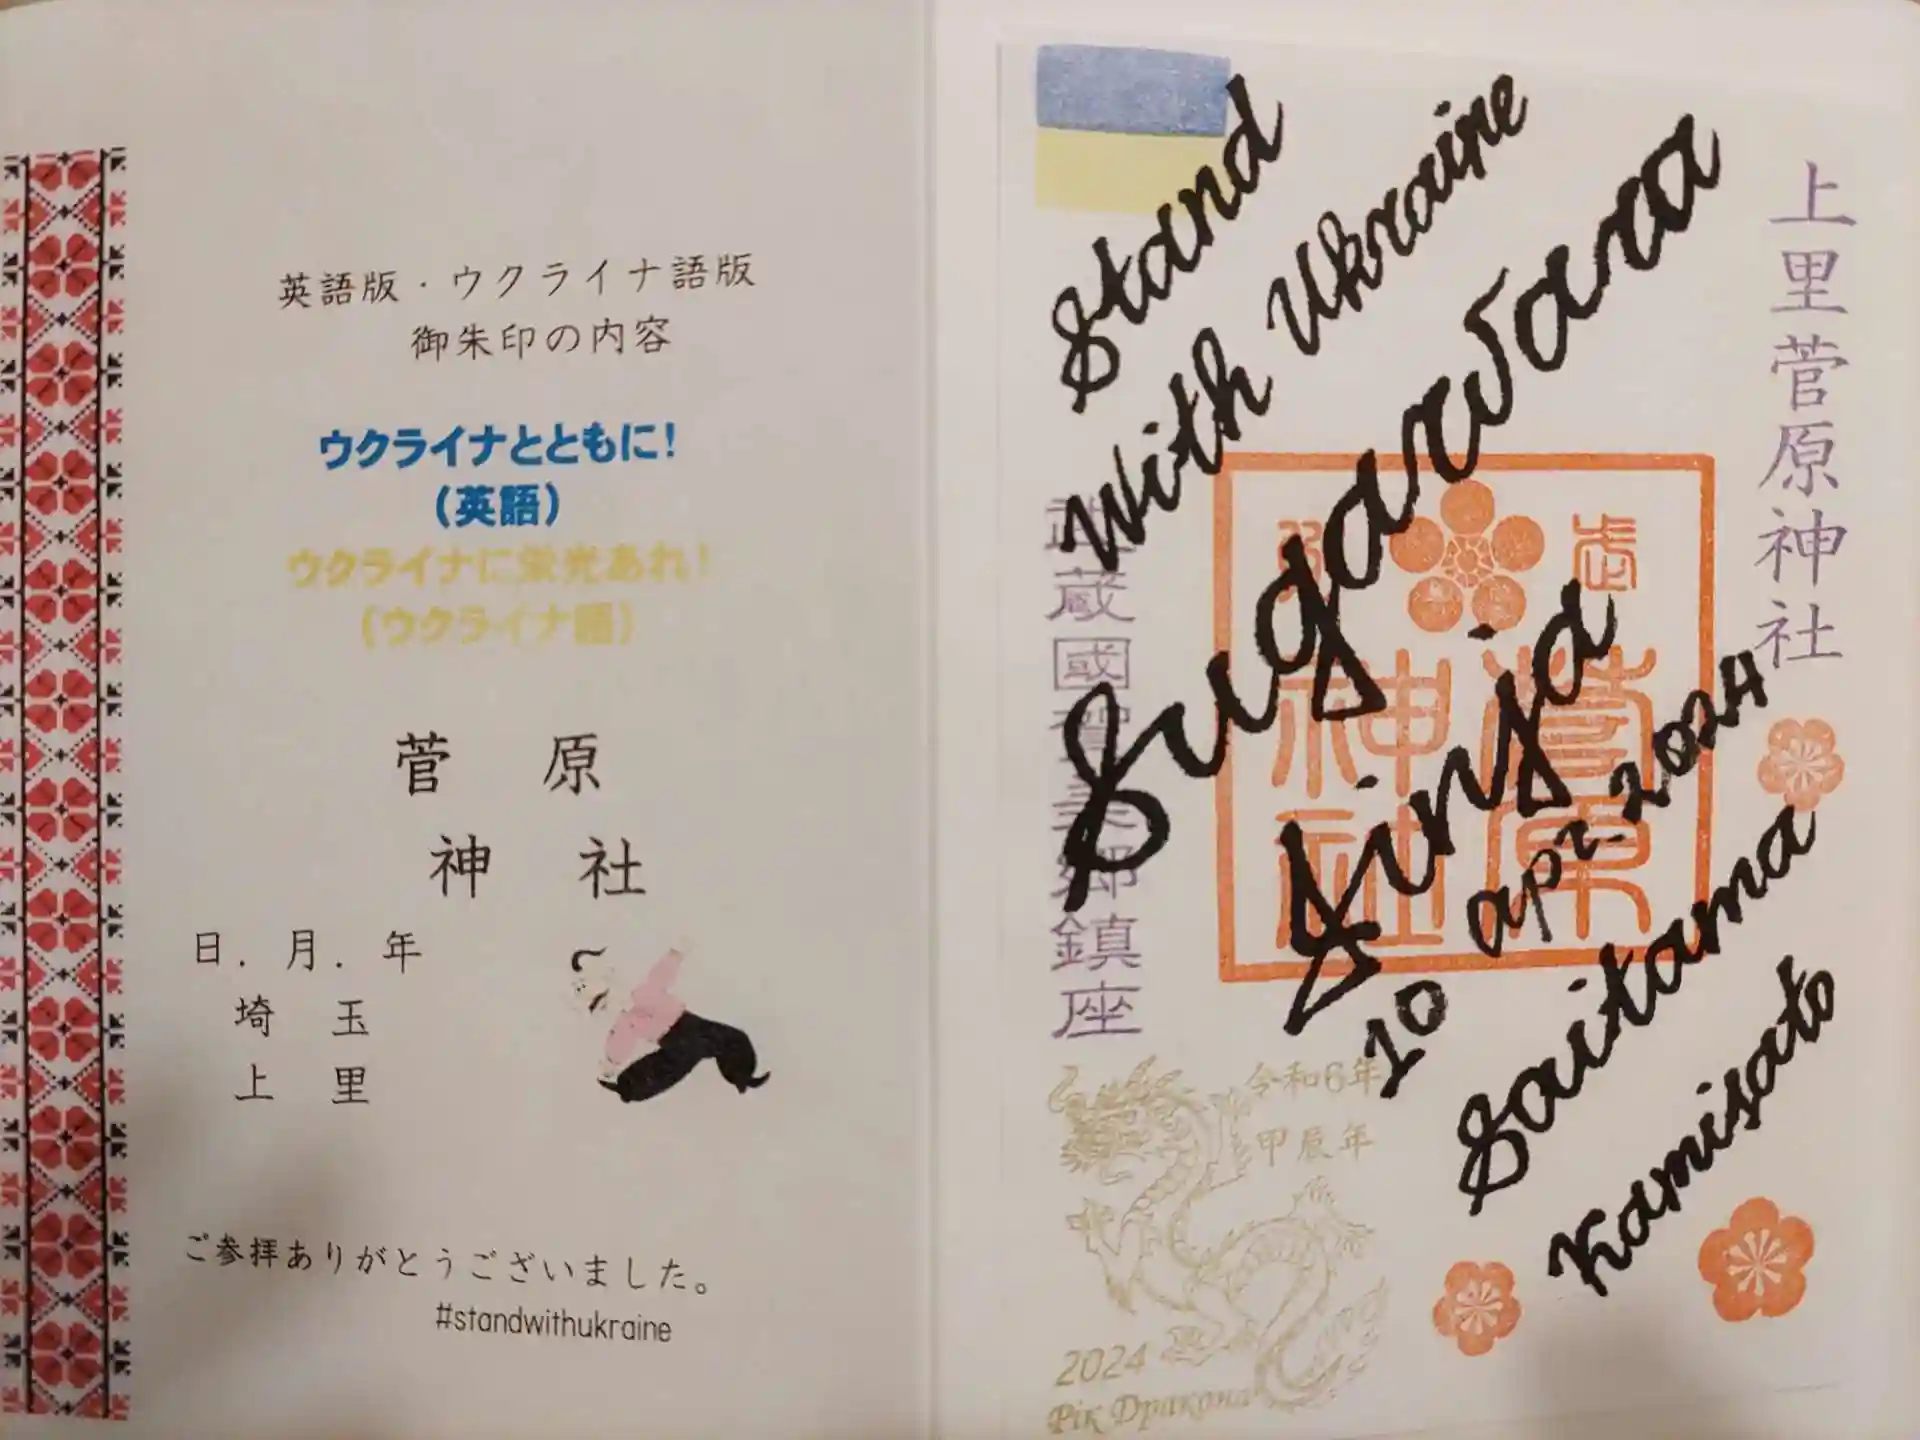 英語版・ウクライナ語版
御朱印の内容
ウクライナとともに!
(英語)
ウクライナに栄光あれ!
(ウクライナ語)
菅原
神社
日.月.年
埼玉
上里
ご参拝ありがとうございました。
#standwithukraine
上里菅原神社
Stand
With Ukraine
Sugawara
Jinja
10 apr. 2024
Saitama
Kamisato
武蔵國賀美郷鎮座
菅原
神社
令和6年
甲辰年
2024
Рік Дракона